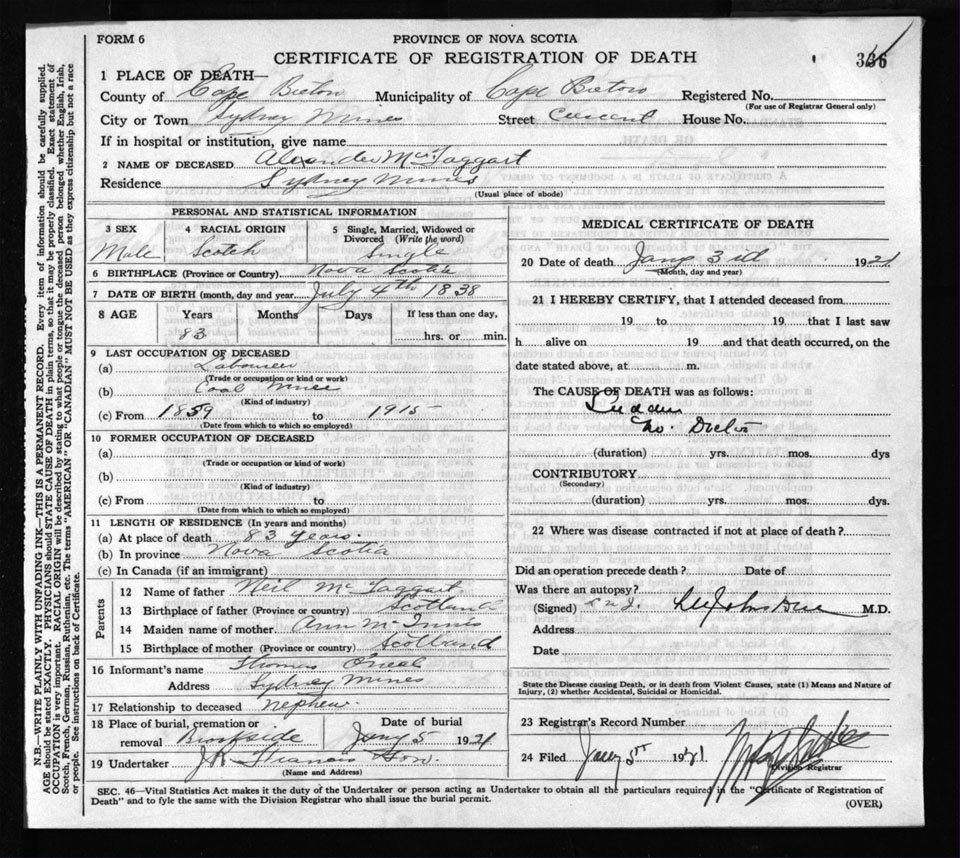 FORM 6
PROVINCE OF NOVA SCOTIA
CERTIFICATE OF REGISTRATION OF DEATH
336
1 PLACE OF DEATH—
County of Cape Breton Municipality of Cape Breton Registered No.
(For use of Registrar General only)
City or Town Sydney Mines Street Crescent House No.
If in hospital or institution, give name
2 NAME OF DECEASED Alexander McTaggart
Residence Sydney Mines
(Usual place of abode)
PERSONAL AND STATISTICAL INFORMATION
3 SEX 4 RACIAL ORIGIN 5 Single, Married, Widowed or Divorced (Write the word)
Male Scotch Single
6 BIRTHPLACE (Province or Country) Nova Scotia
7 DATE OF BIRTH (month, day and year) July 4th 1838
8 AGE Years Months Days If less than one day,
83 hrs. or min.
9 LAST OCCUPATION OF DECEASED
(a) Labourer
(Trade or occupation or kind or work)
(b) Coal Mines
(Kind of industry)
(c) From 1859 to 1915
(Date from which to which so employed)
10 FORMER OCCUPATION OF DECEASED
(a)
(Trade or occupation or kind or work)
(b)
(Kind of industry)
(c) From to
(Date from which to which so employed)
11 LENGTH OF RESIDENCE (In years and months)
(a) At place of death 83 years.
(b) In province Nova Scotia
(c) In Canada (if an immigrant)
Parents
12 Name of father Neil McTaggart
13 Birthplace of father (Province or country) Scotland
14 Maiden name of mother Ann McInnis
15 Birthplace of mother (Province or country) Scotland
16 Informant's name Thomas Oneal
Address Sydney Mines
17 Relationship to deceased nephew.
18 Place of burial, cremation or Date of burial
removal Brookside Jany 5 1921
19 Undertaker J R Francis Son.
(Name and Address)
MEDICAL CERTIFICATE OF DEATH
20 Date of death Jany 3rd 1921
(Month, day and year)
21 I HEREBY CERTIFY, that I attended deceased from
19 to 19 that I last saw
h alive on 19 and that death occurred, on the
date stated above, at m.
The CAUSE OF DEATH was as follows:
Sudden
No. Doctor
(duration) yrs. mos. dys
CONTRIBUTORY
(Secondary)
(duration) yrs. mos. dys.
22 Where was disease contracted if not at place of death?
Did an operation precede death? Date of
Was there an autopsy?
(Signed) M.D.
Address
Date
State the Disease causing Death, or in death from Violent Causes, state (1) Means and Nature of
Injury, (2) whether Accidental, Suicidal or Homicidal.
23 Registrar's Record Number
24 Filed Jany 5th 1921
Division Registrar
SEC. 46—Vital Statistics Act makes it the duty of the Undertaker or person acting as Undertaker to obtain all the particulars required in the "Certificate of Registration of
Death" and to fyle the same with the Division Registrar who shall issue the burial permit.
(OVER)
N.B.—WRITE PLAINLY WITH UNFADING INK—THIS IS A PERMANENT RECORD. Every item of information should be carefully supplied.
AGE should be stated EXACTLY. PHYSICIANS should STATE CAUSE OF DEATH in plain terms, so that it may be properly classified. Exact statement of
OCCUPATION is very important. RACIAL ORIGIN will be described by stating to what people or tongue the deceased person belonged whether English, Irish,
Scotch, French, German, Russian, Ruthenian, etc. The terms "AMERICAN" or "CANADIAN" MUST NOT BE USED as they express citizenship but not a race
or people. See instructions on back of Certificate.